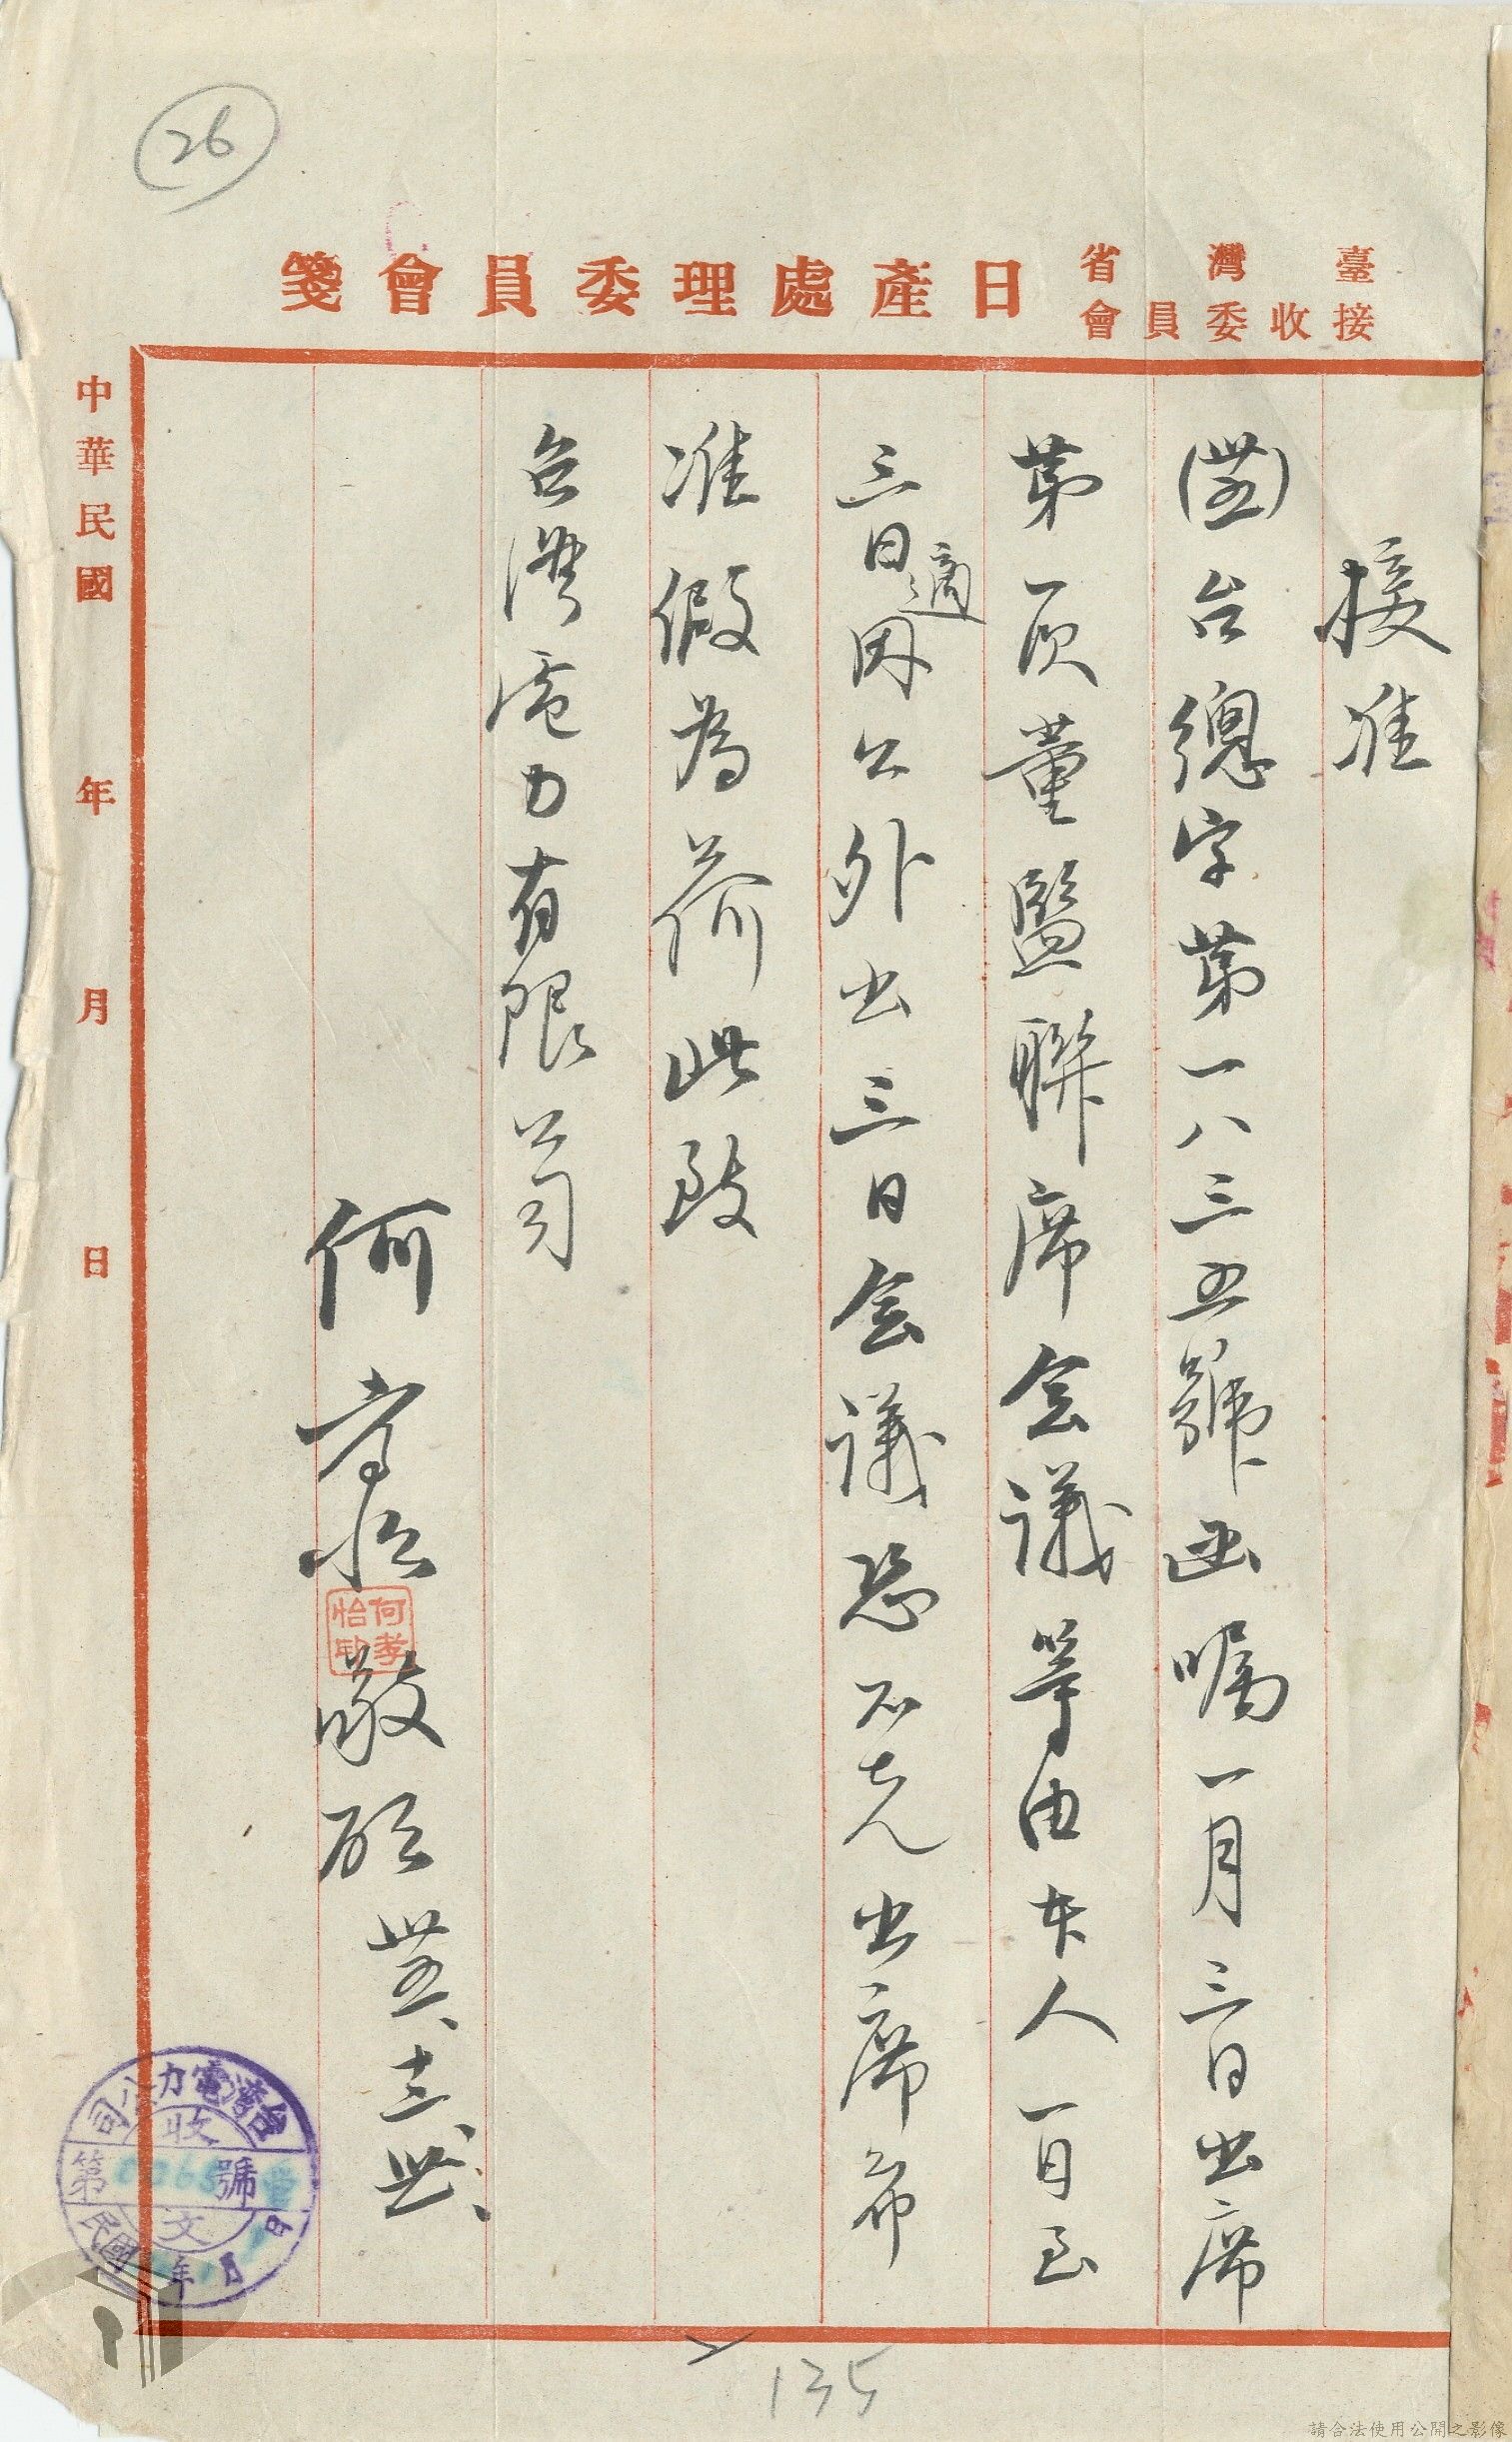 26
臺灣省
接收委員會
日產處理委員會箋
接准
(卅五)台總字第一八三五號函囑一月三日出席
第一次董監聯席会議等由本人一日至
三日適因公外出三日会議恐不克出席希
准假為荷此致
台灣電力有限公司
何孝怡 敬啟 卅五、十二、卅、
何孝怡印
中華民國 年 月 日
台灣電力公司
收文
第 號
民國 年 月 日
135
請合法使用公開之影像